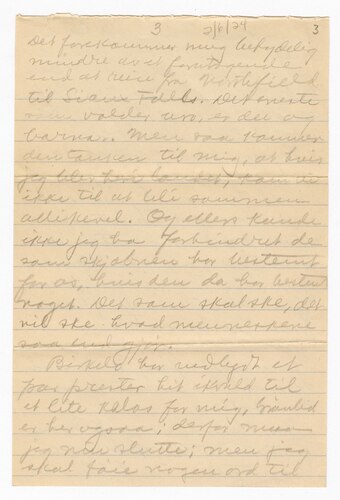 3 2/6/24 3
Det forekommer mig ubetydelig
mindre av et foretagende
end at reise fra Northfield
til Sioux Falls. Det eneste
som volder uro, er det og
barna. Men saa kommer
den tanken til mig, at hvis
jeg blir i landet, kan vi
ikke til at bli sammen
allikevel. Og ellers kunde
ikke jeg ha forhindret de
som skjæbnen har bestemt
for os, hvis den da har bestemt
noget. Det som skal ske, det
vil ske hvad menneskene
saa end gjør.
Birkelo har nedbedt et
par prester hit ikveld til
et lite kalas for mig,
er her ogsaa; derfor maa
jeg nu slutte; men jeg
skal føie nogen ord til